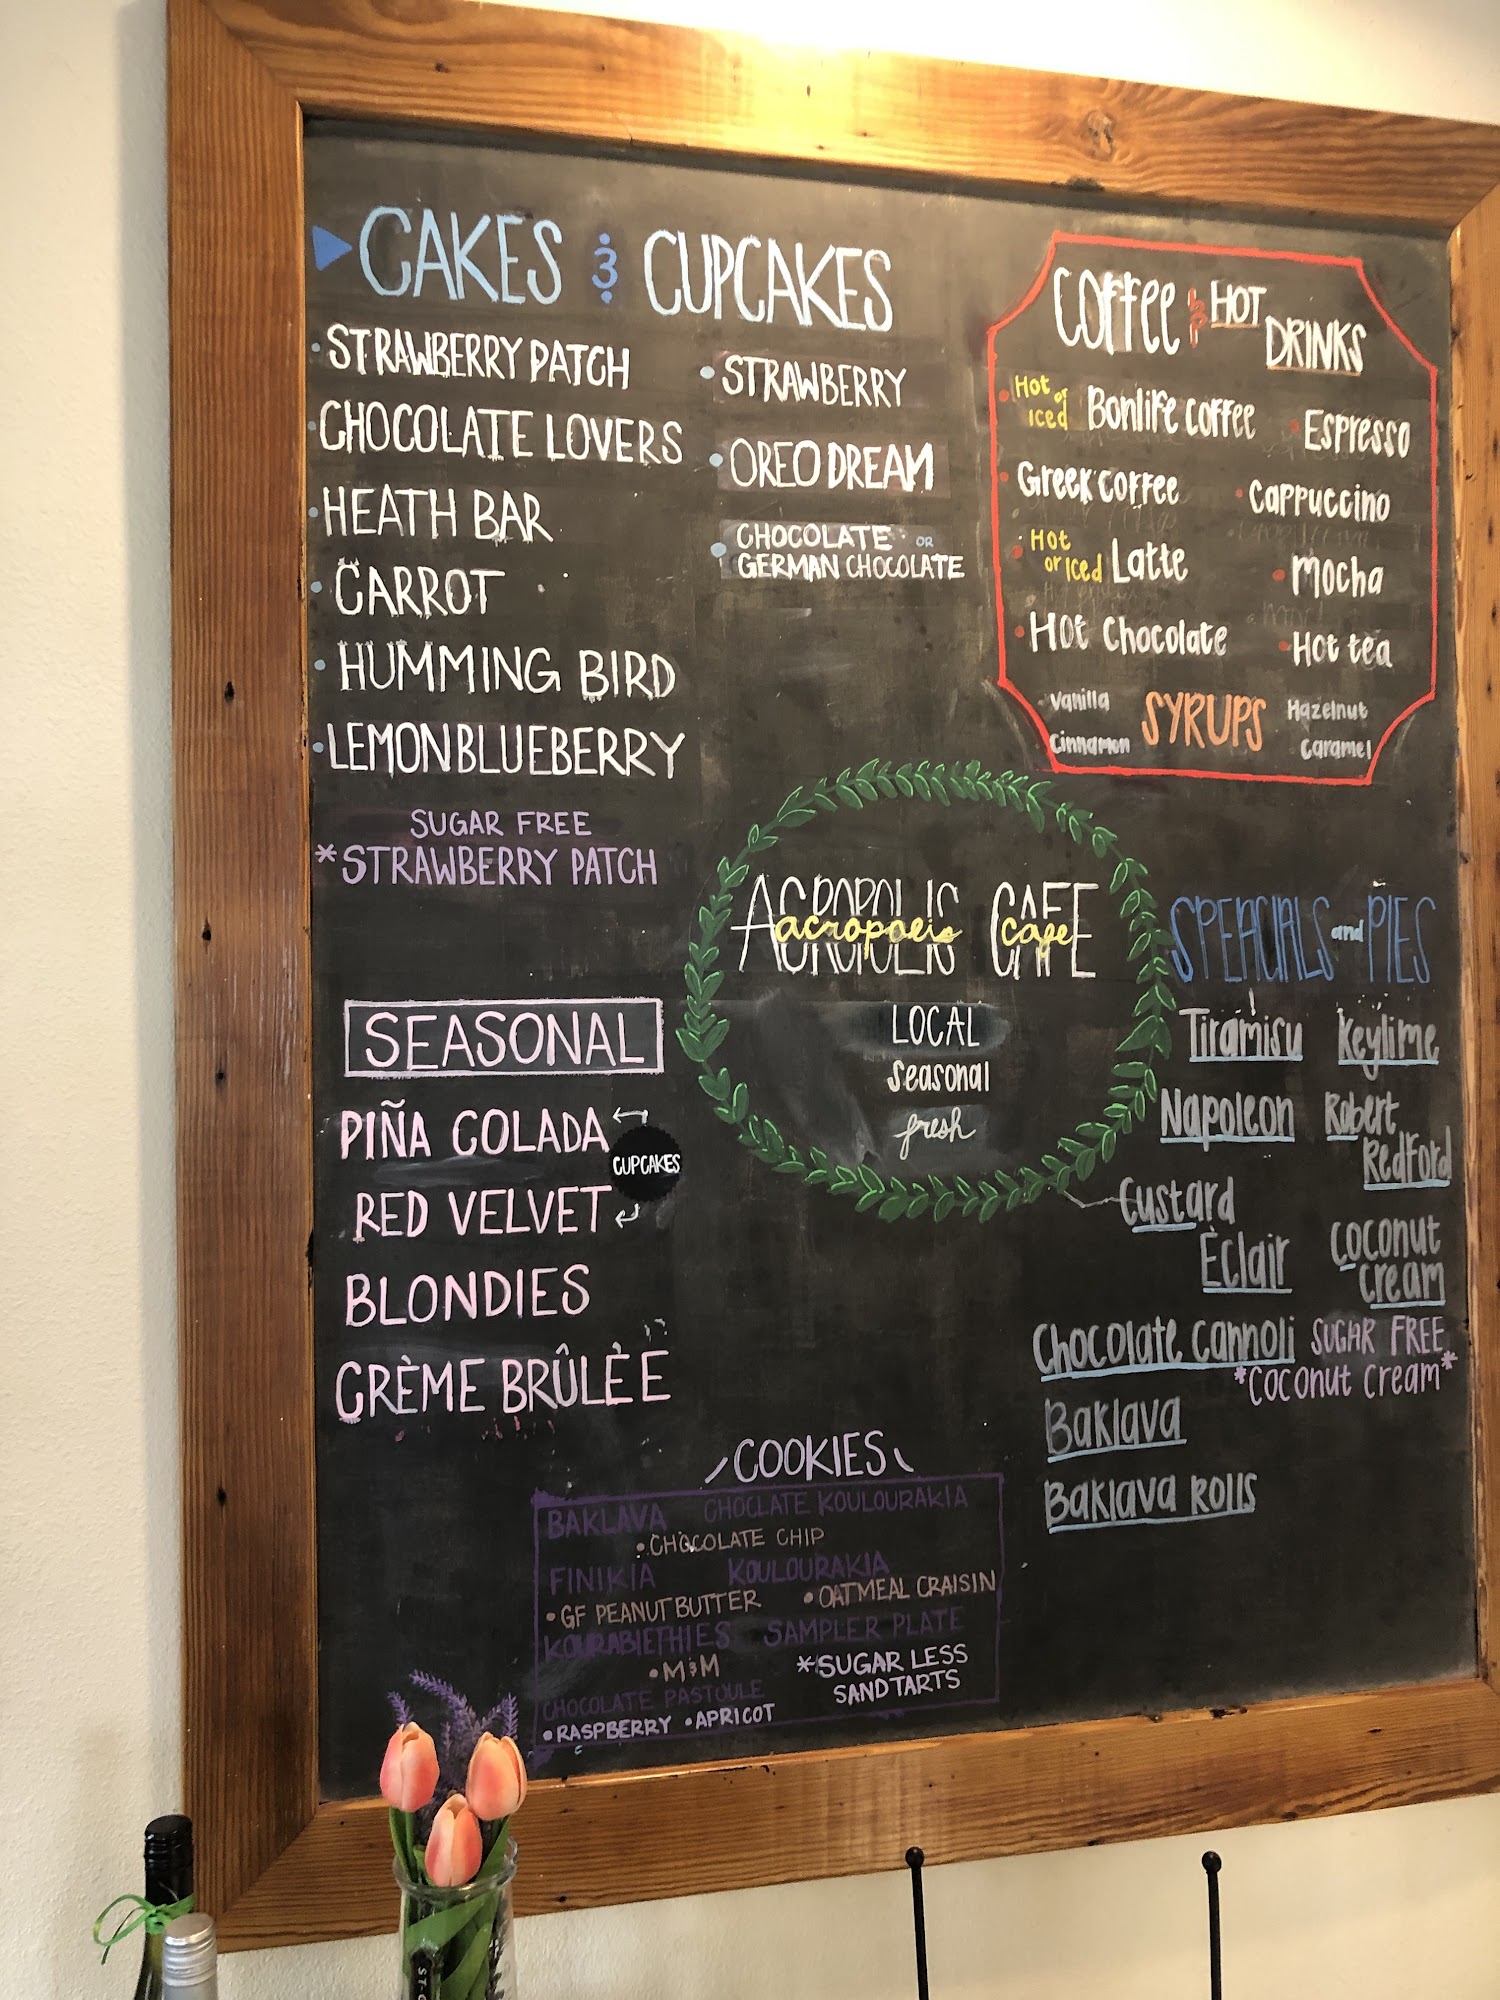 CAKES & CUPCAKES
STRAWBERRY PATCH
CHOCOLATE LOVERS
HEATH BAR
CARROT
HUMMING BIRD
LEMON BLUEBERRY
SUGAR FREE
*STRAWBERRY PATCH
• STRAWBERRY
• OREO DREAM
• CHOCOLATE OR
GERMAN CHOCOLATE
Coffee & HOT
DRINKS
• Hot or iced Bonlife coffee
• Espresso
• Greek coffee
• Cappuccino
• Hot or iced Latte
• Mocha
• Hot Chocolate
• Hot tea
SYRUPS
Vanilla
Cinnamon
Hazelnut
Caramel
ACROPOLIS CAFE
acropolis cafe
LOCAL
Seasonal
fresh
SEASONAL
PIÑA COLADA
CUPCAKES
RED VELVET
BLONDIES
CRÈME BRÛLÈE
SPEACIALS and PIES
Tiramisu
Napoleon
Custard
Èclair
Chocolate Cannoli
Baklava
Baklava Rolls
Keylime
Robert
Redford
Coconut
Cream
SUGAR FREE
*Coconut Cream*
COOKIES
BAKLAVA CHOCLATE KOULOURAKIA
• CHOCOLATE CHIP
FINIKIA KOULOURAKIA
• GF PEANUT BUTTER • OATMEAL CRAISIN
KOURABIETHIES SAMPLER PLATE
• M&M
*SUGAR LESS
SAND TARTS
CHOCOLATE PASTOULE
• RASPBERRY • APRICOT